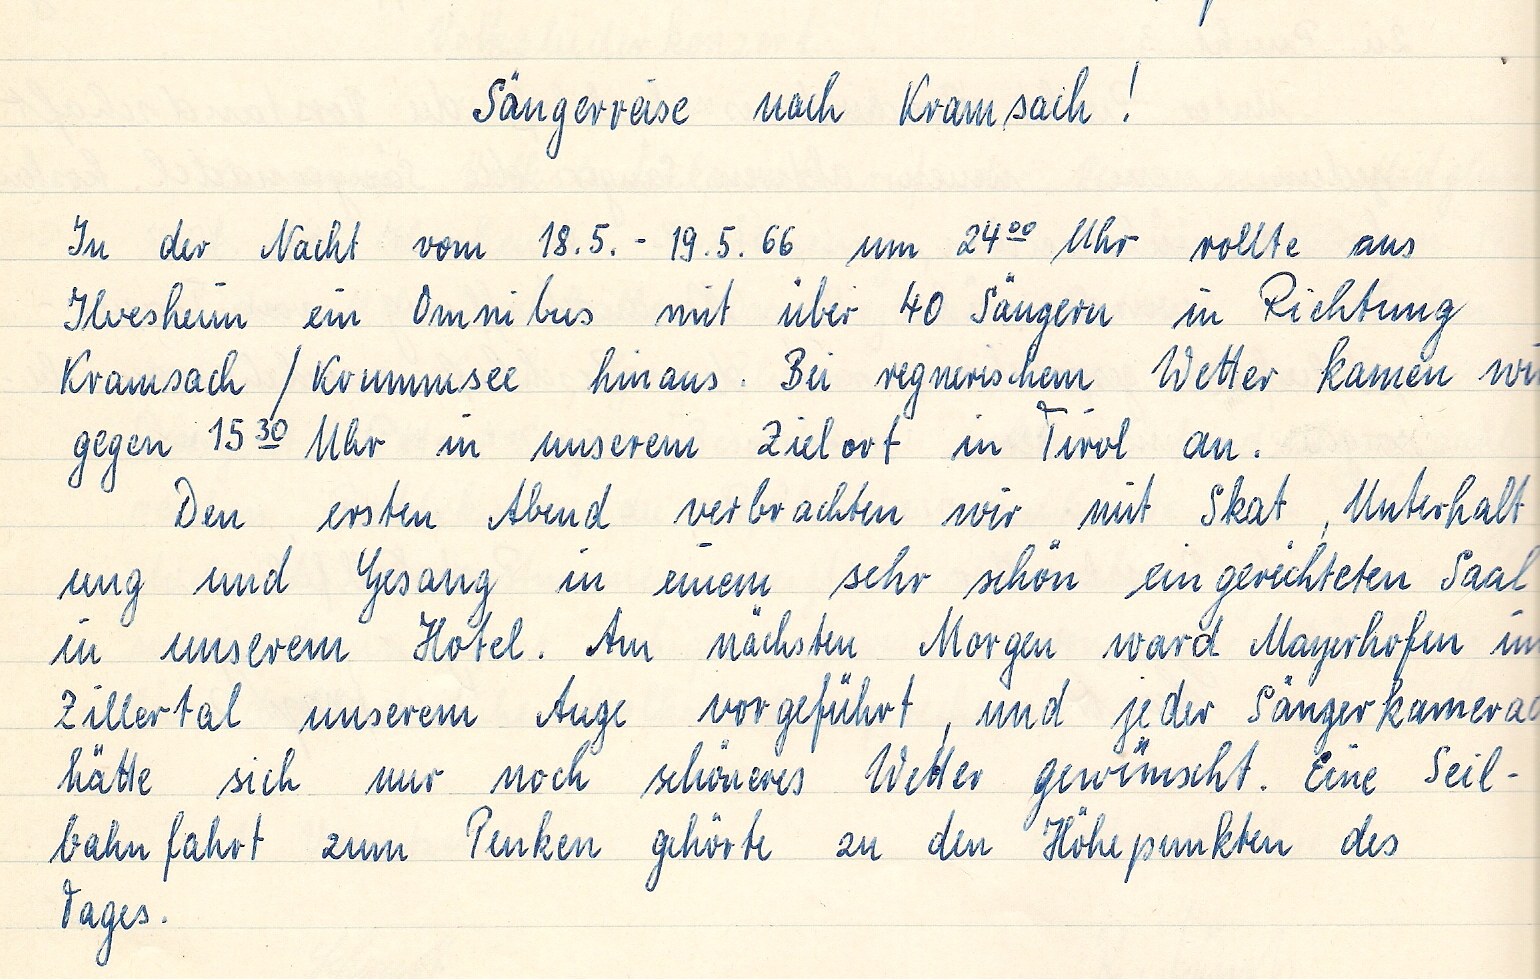 Sängerreise nach Kramsach!
In der Nacht vom 18.5. - 19.5. 66 um 24⁰⁰ Uhr rollte aus
Ilvesheim ein Omnibus mit über 40 Sängern in Richtung
Kramsach / Krummsee hinaus. Bei regnerischem Wetter kamen wi
gegen 15³⁰ Uhr in unserem Zielort in Tirol an.
Den ersten Abend verbrachten wir mit Skat, Unterhalt
ung und Gesang in einem sehr schön eingerichteten Saal
in unserem Hotel. Am nächsten Morgen ward Mayerhofen im
Zillertal unserem Auge vorgeführt, und jeder Sängerkamerad
hätte sich nur noch schöneres Wetter gewünscht. Eine Seil-
bahnfahrt zum Penken gehörte zu den Höhepunkten des
Tages.